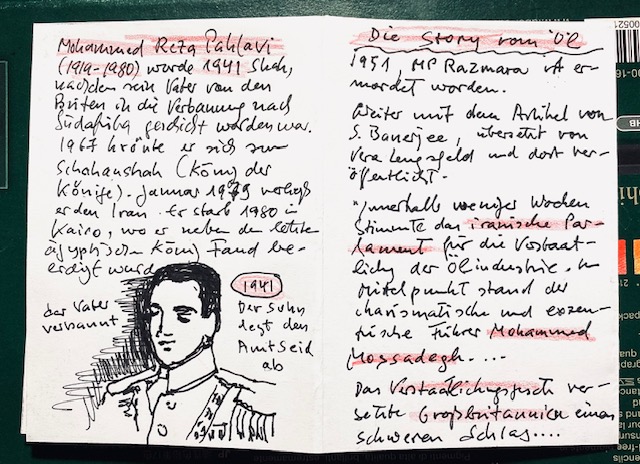 Mohammed Reza Pahlavi
(1919-1980) wurde 1941 Shah,
nachdem sein Vater von den
Briten in die Verbannung nach
Südafrika geschickt worden war.
1967 krönte er sich zum
Schahanshah (König der
Könige). Januar 1979 verließ
er den Iran. Er starb 1980 in
Kairo, wo er neben dem letzten
ägyptischen König Faud be-
erdigt wurde
der Vater
verbannt
1941
Der Sohn
legt den
Amtseid
ab
Die Story vom Öl
1951, MP Razmara ist er-
mordet worden.
Weiter mit dem Artikel von
S. Banerjee, übersetzt von
Vera Lengsfeld und dort ver-
öffentlicht.
"Innerhalb weniger Wochen
stimmte das iranische Par-
lament für die Verstaat-
lichg der Ölindustrie. Im
Mittelpunkt stand der
charismatische und exzen-
trische Führer Mohammed
Mossadegh....
Das Verstaatlichungsgesetz ver-
setzte Großbritannien einen
schweren Schlag....
HB